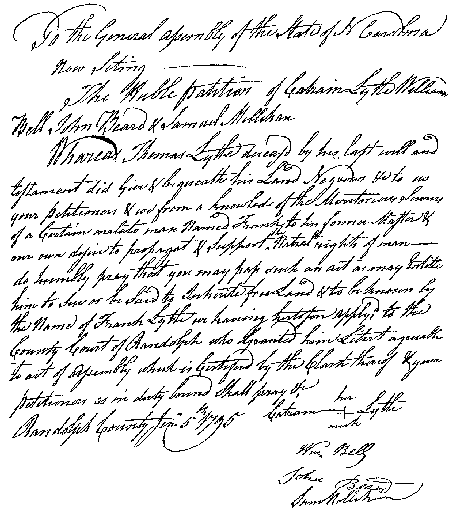 To the General assembly of the State of N Carolina
Now Seting
The Umble petition of Catrain Lytle William
Bell John Beard & Samuel Millikan
Whareas Thomas Lytle deceasd by his last will and
testament did Give & bequeath his Land Negroes &c to us
your petitioners & we from a knowledge of the Meritorious Services
of a Certain malato man Named Frank to his former Master &
our own desire to propagat & Support Natral rights of man
do humbly pray that you may pass such an act as may Intitle
him to Sue or be Sued to Inherite free Land & to be known by
the Name of Frank Lytle we haveing heretofore applyd to the
County Court of Randolph who Granted him Liberty agreeable
to act of Assembly which is Certifyed by the Clark thereof & your
Petitioners as in duty bound Shall pray &c
Randolph County Jan 5th 1795 Catrain her + mark Lytle
Wm Bell
John Beard
Sam Millikan